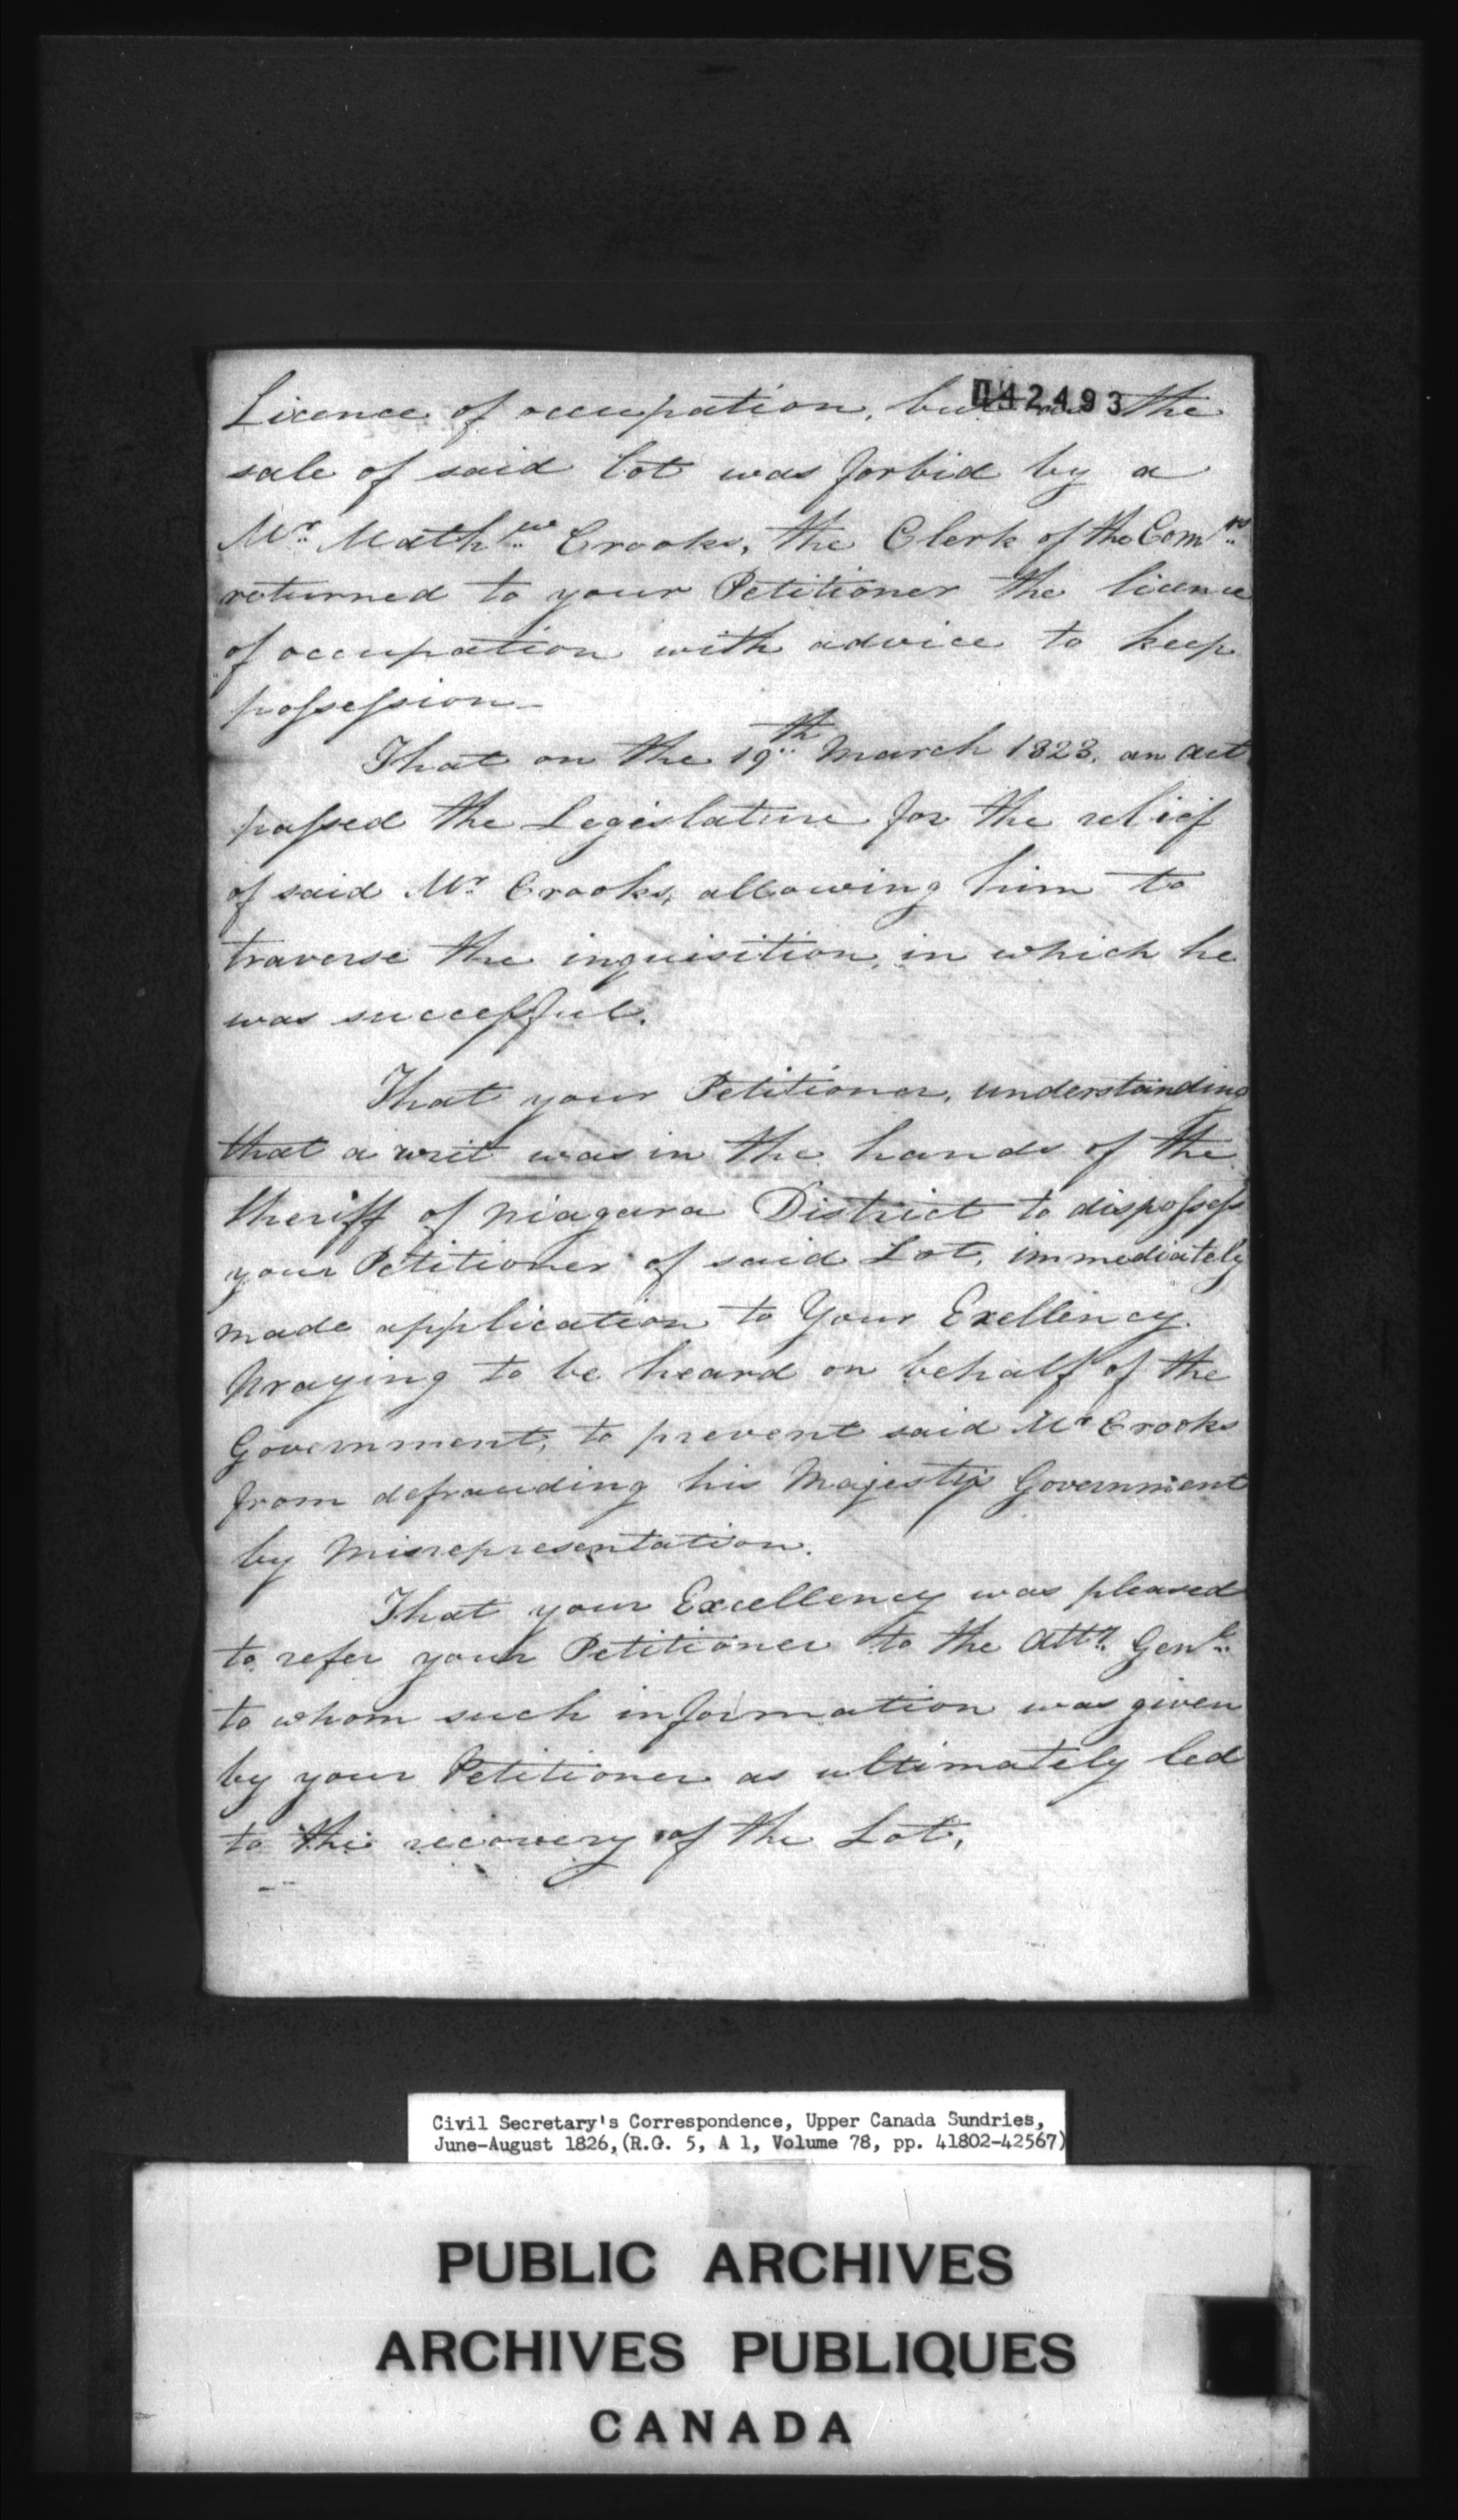 042493
Licence of occupation, but as the
sale of said lot was forbid by a
Mr. Mathw. Crooks, the Clerk of the Comrs.
returned to your Petitioner the licence
of occupation with advice to keep
possession_
That on the 19th March 1823. an act
passed the Legislature for the relief
of said Mr Crooks, allowing him to
traverse the inquisition, in which he
was successful.
That your Petitioner, understanding
that a writ was in the hands of the
Sheriff of Niagara District to dispossess
your Petitioner of said Lot, immediately
made application to Your Exellency.
Praying to be heard on behalf of the
Government, to prevent said Mr Crooks
from defrauding his Majestys Government
by Misrepresentation.
That your Excellency was pleased
to refer your Petitioner to the Atty. Genl.
to whom such information was given
by your Petitioner as ultimately led
to the recovery of the Lot,
Civil Secretary's Correspondence, Upper Canada Sundries,
June-August 1826, (R.G. 5, A 1, Volume 78, pp. 41802-42567)
PUBLIC ARCHIVES
ARCHIVES PUBLIQUES
CANADA